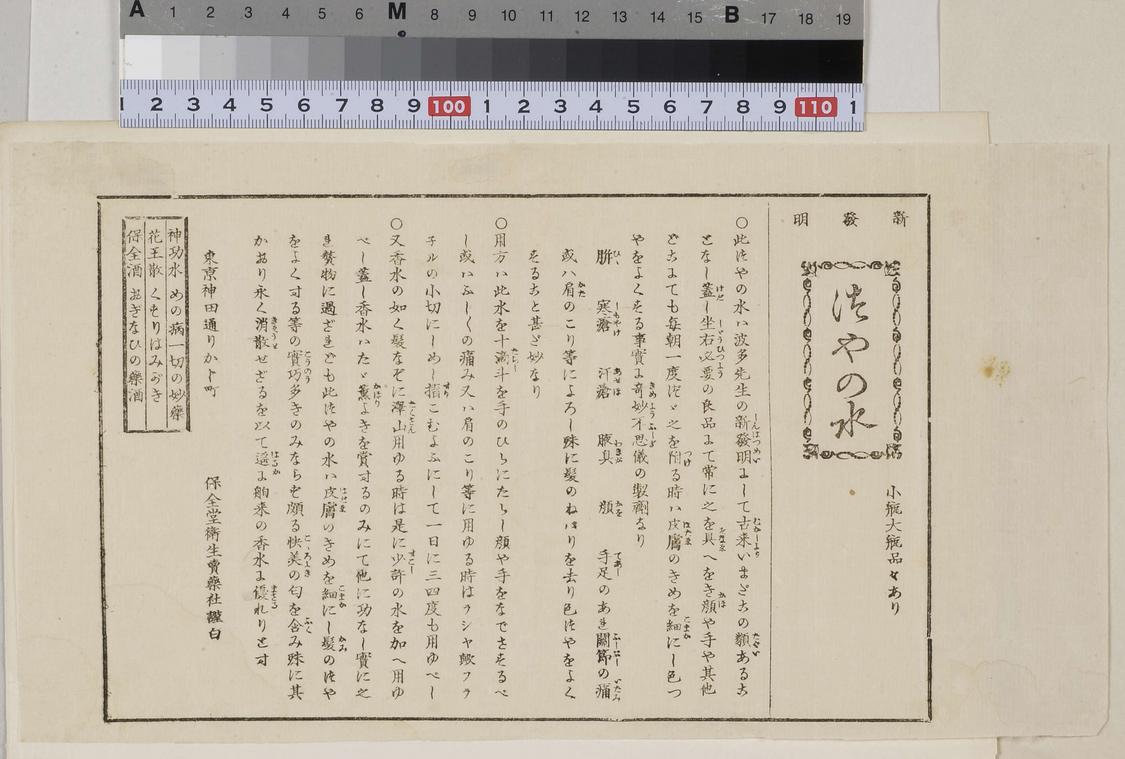 A 1 2 3 4 5 6 M 8 9 10 11 12 13 14 15 B 17 18 19
1 2 3 4 5 6 7 8 9 100 1 2 3 4 5 6 7 8 9 110 1
新發明
つやの水
小瓶大瓶品々あり
〇此つやの水ハ波多先生の新發明にして古来いまだ之の類あるこ
となし蓋し坐右必要の良品にて常に之を具へをき顔や手や其他
どこにても毎朝一度づゝ之を附る時ハ皮膚のきめを細にし色つ
やをよくする事實に奇妙不思儀の製劑なり
胼 寒瘡 汗瘡 腋臭 顔 手足のあれ關節の痛
或ハ肩のこり等によろし殊に髮のねばりを去り色つやをよく
することと甚ざ妙なり
〇用方ハ此水を十滴斗を手のひらにたらし顔や手をなでさするべ
し或ハふしくの痛み又ハ肩のこり等に用ゆる時はラシャ歟フラ
子ルの小切にしめし揩こむよふにして一日に三四度も用ゆべし
〇又香水の如く髮なぞに澤山用ゆる時は是に少許の水を加へ用ゆ
べし蓋し香水ハたゞ薫よきを賞するのみにて他に功なし實に之
れ贅物に過ざれども此つやの水ハ皮膚のきめを細にし髮のつや
をよくする等の實巧多きのみならず頗る快美の匂を含み殊に其
かおり永く消散せざるを以て遥に舶来の香水に優れりとす
東京神田通りかぢ町
保全堂衛生賣藥社謹白
神功水 めの病一切の妙藥
花王散 くもりはみがき
保全酒 おぎなひの藥酒